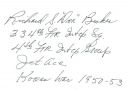 Richard S "Dick" Becker
334th Ftr Intcp Sq
4th Ftr Intcp Group
Jet Ace
Korean War 1950-53